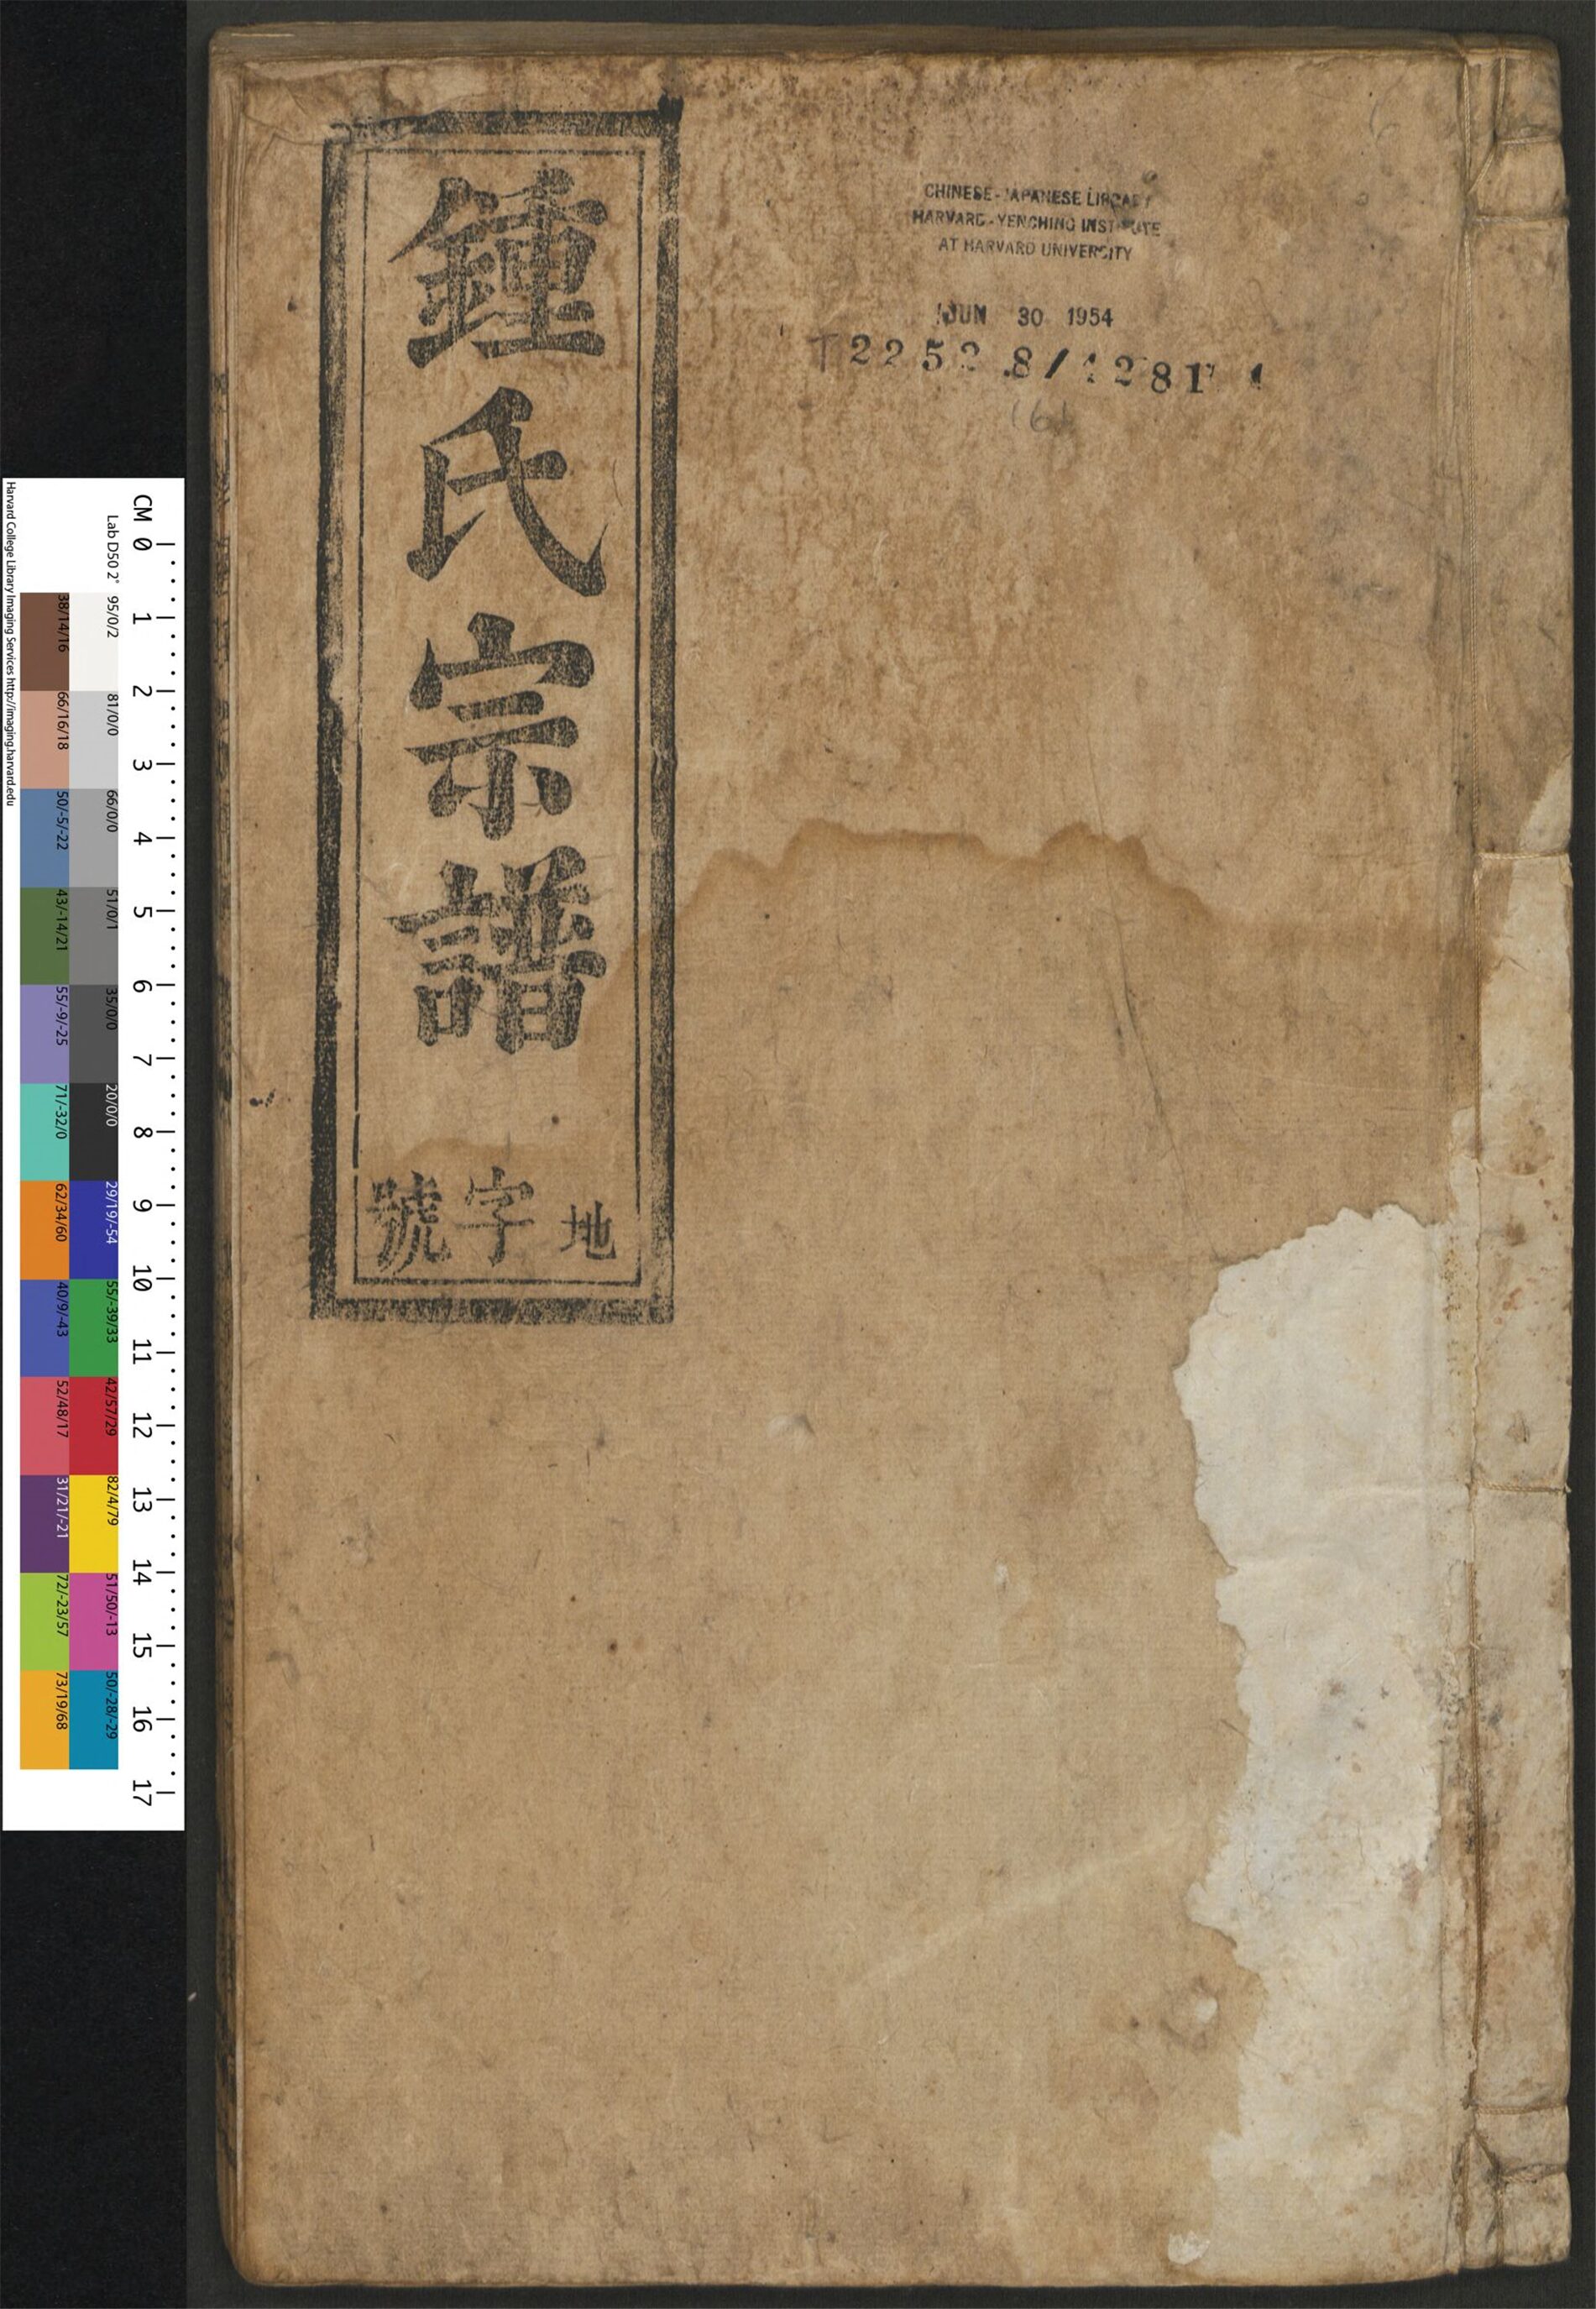 鍾氏宗譜
地字號
CHINESE-JAPANESE LIBRARY
HARVARD-YENCHING INSTITUTE
AT HARVARD UNIVERSITY
JUN 30 1954
(6)
CM 0 1 2 3 4 5 6 7 8 9 10 11 12 13 14 15 16 17
Lab D50 2° 95/0/2 81/0/0 66/0/0 51/0/1 35/0/0 20/0/0 29/19/-54 55/-39/33 42/57/29 82/4/79 51/50/-13 50/-28/-29
38/14/16 66/16/18 50/-5/-22 43/-14/21 55/-9/-25 71/-32/0 62/34/60 40/9/-43 52/48/17 31/21/-21 72/-23/57 73/19/68
Harvard College Library Imaging Services http://imaging.harvard.edu